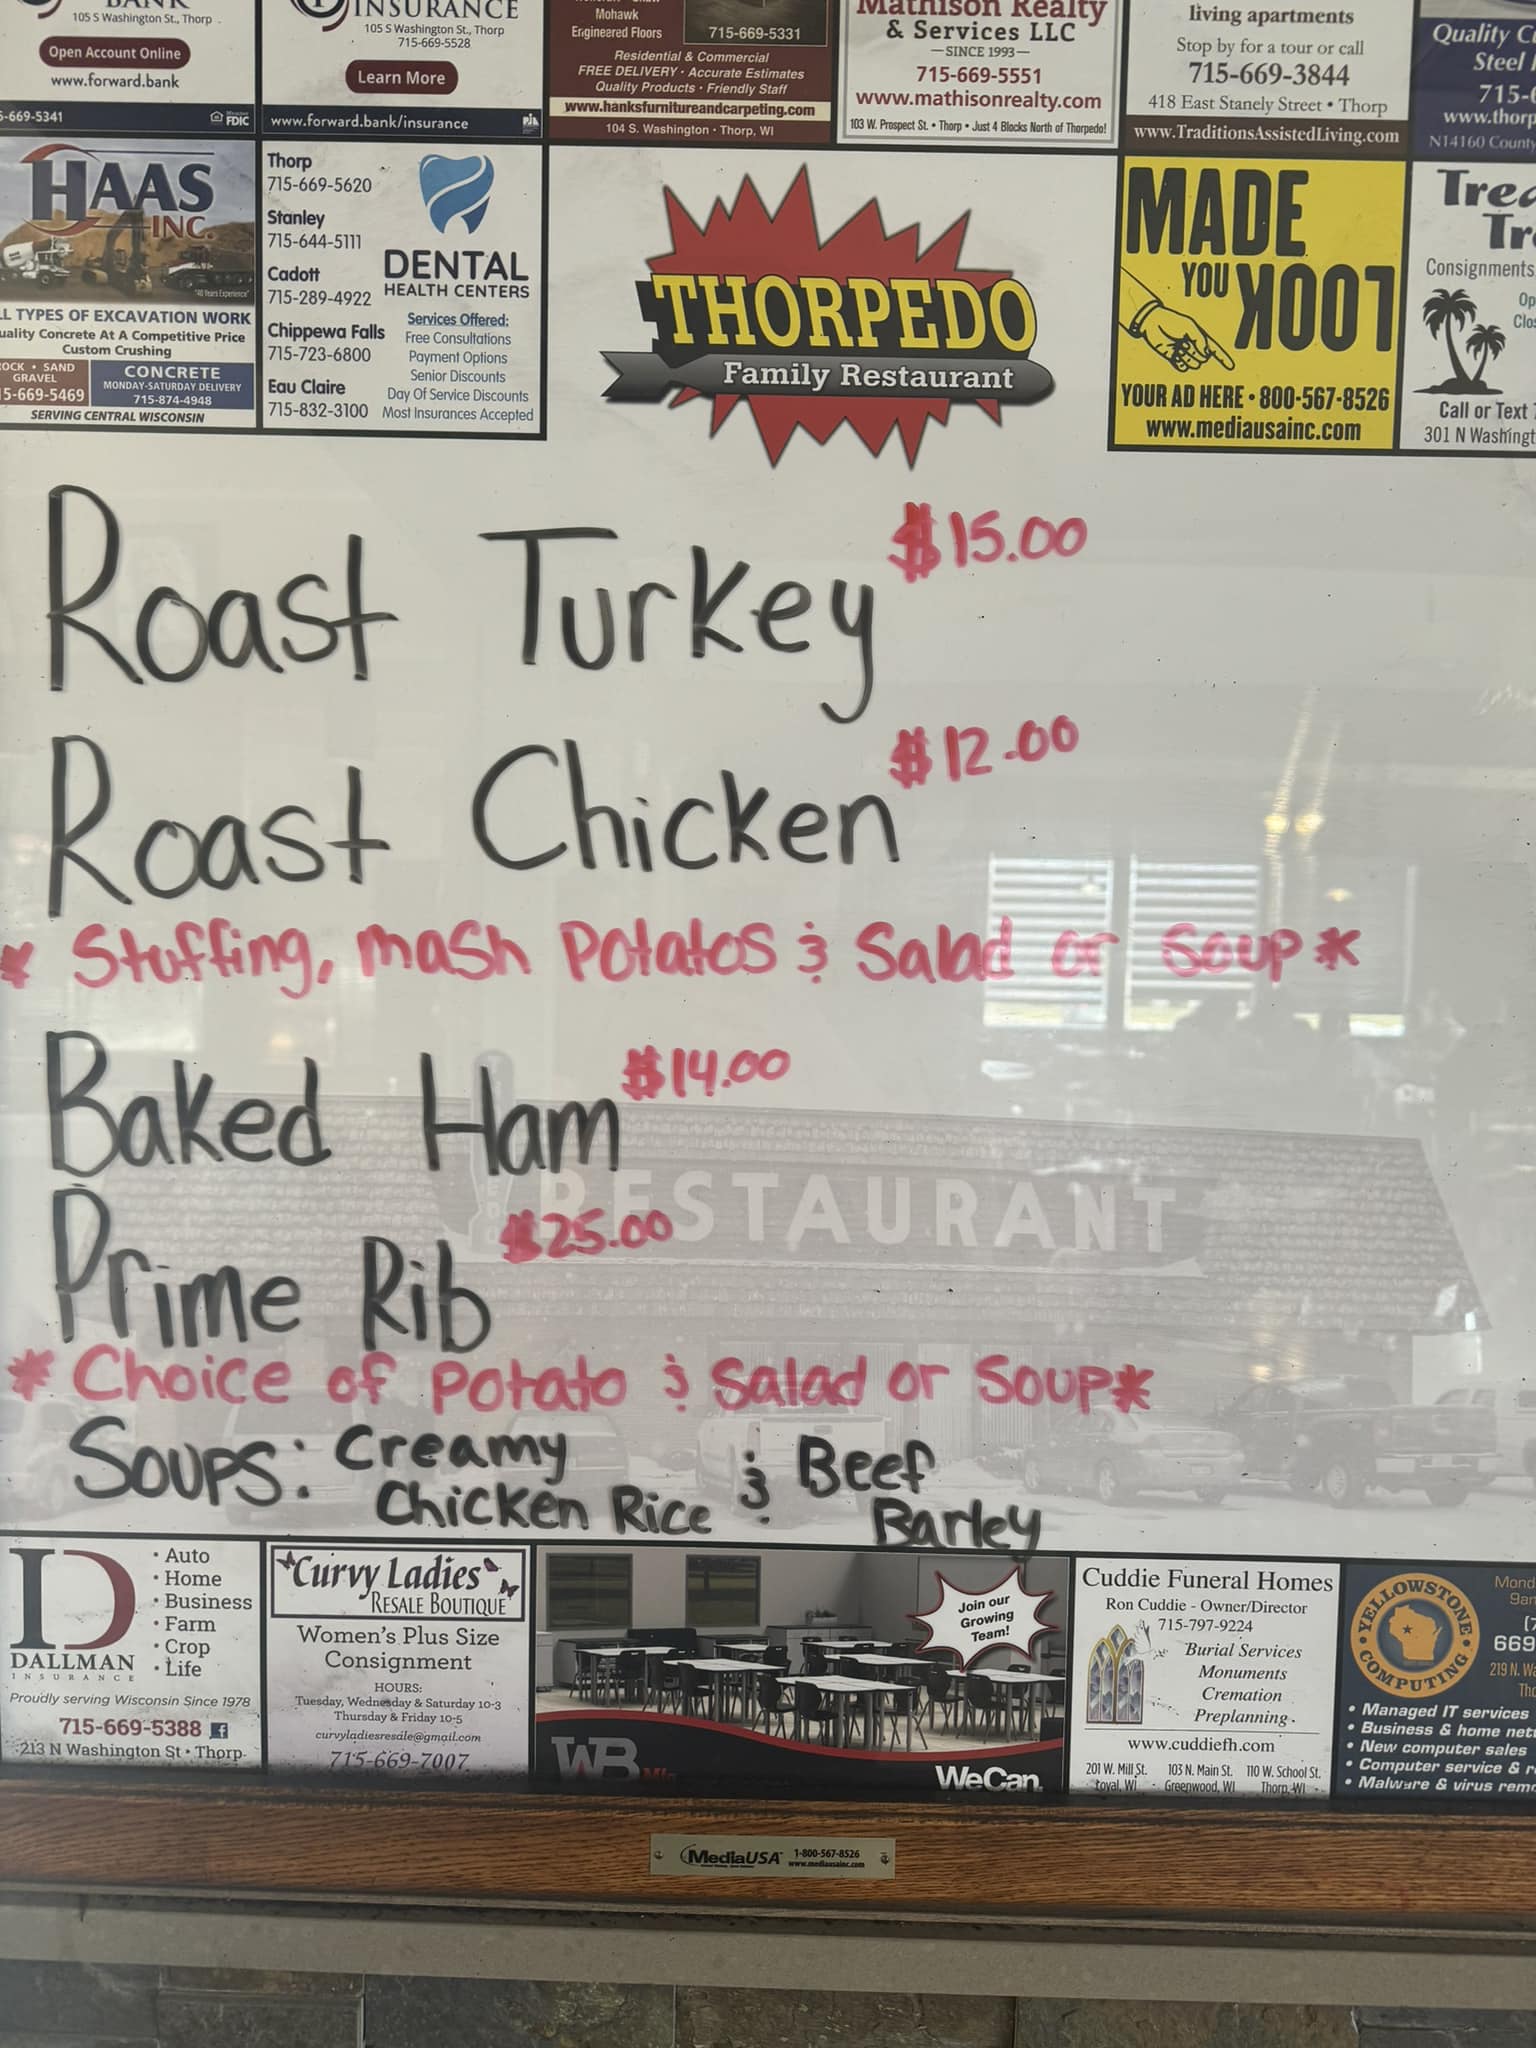 BANK
105 S Washington St., Thorp
Open Account Online
www.forward.bank
5-669-5341
FDIC
INSURANCE
105 S Washington St., Thorp
715-669-5528
Learn More
www.forward.bank/insurance
Mohawk
Engineered Floors
715-669-5331
Residential & Commercial
FREE DELIVERY • Accurate Estimates
Quality Products • Friendly Staff
www.hanksfurnitureandcarpeting.com
104 S. Washington • Thorp, WI
Mathison Realty
& Services LLC
—SINCE 1993—
715-669-5551
www.mathisonrealty.com
103 W. Prospect St. • Thorp • Just 4 Blocks North of Thorpedo!
living apartments
Stop by for a tour or call
715-669-3844
418 East Stanely Street • Thorp
www.TraditionsAssistedLiving.com
Quality C
Steel
715-6
www.thorp
N14160 County
HAAS
INC.
"40 Years Experience"
LL TYPES OF EXCAVATION WORK
uality Concrete At A Competitive Price
Custom Crushing
OCK • SAND
GRAVEL
15-669-5469
CONCRETE
MONDAY-SATURDAY DELIVERY
715-874-4948
SERVING CENTRAL WISCONSIN
Thorp
715-669-5620
Stanley
715-644-5111
Cadott
715-289-4922
Chippewa Falls
715-723-6800
Eau Claire
715-832-3100
DENTAL
HEALTH CENTERS
Services Offered:
Free Consultations
Payment Options
Senior Discounts
Day Of Service Discounts
Most Insurances Accepted
THORPEDO
Family Restaurant
MADE
YOU LOOK
YOUR AD HERE • 800-567-8526
www.mediausainc.com
Trea
Tr
Consignments
Op
Clos
Call or Text 7
301 N Washingt
Roast Turkey $15.00
Roast Chicken $12.00
* Stuffing, mash Potatos & Salad or Soup *
Baked Ham $14.00
Prime Rib $25.00
RESTAURANT
* Choice of potato & Salad or Soup *
Soups: Creamy Chicken Rice & Beef Barley
ID
DALLMAN
INSURANCE
• Auto
• Home
• Business
• Farm
• Crop
• Life
Proudly serving Wisconsin Since 1978
715-669-5388
213 N Washington St • Thorp
Curvy Ladies
RESALE BOUTIQUE
Women's Plus Size
Consignment
HOURS:
Tuesday, Wednesday & Saturday 10-3
Thursday & Friday 10-5
curvyladiesresale@gmail.com
715-669-7007
Join our
Growing
Team!
WB Mfg
WeCan.
Cuddie Funeral Homes
Ron Cuddie - Owner/Director
715-797-9224
Burial Services
Monuments
Cremation
Preplanning
www.cuddiefh.com
201 W. Mill St. 103 N. Main St. 110 W. School St.
Loyal, WI - Greenwood, WI Thorp, WI
YELLOWSTONE
COMPUTING
Mond
9am
(7
669
219 N. Wa
Tho
• Managed IT services
• Business & home net
• New computer sales
• Computer service & r
• Malware & virus rem
MediaUSA 1-800-567-8526
www.mediausainc.com